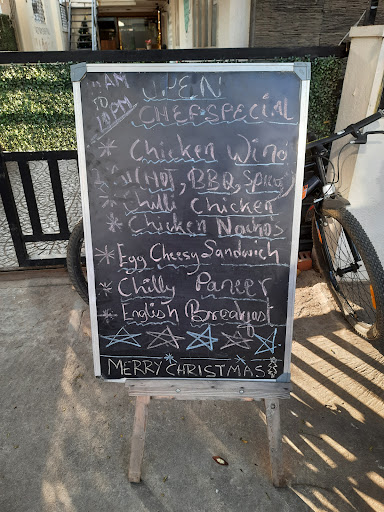 AM
TO
10PM
OPEN
CHEFSPECIAL
* Chicken Wing
(HOT, BBQ, Spicy)
* Chilli Chicken
* Chicken Nachos
* Egg Cheesy Sandwich
* Chilly Paneer
* English Breakfast
MERRY CHRISTMAS